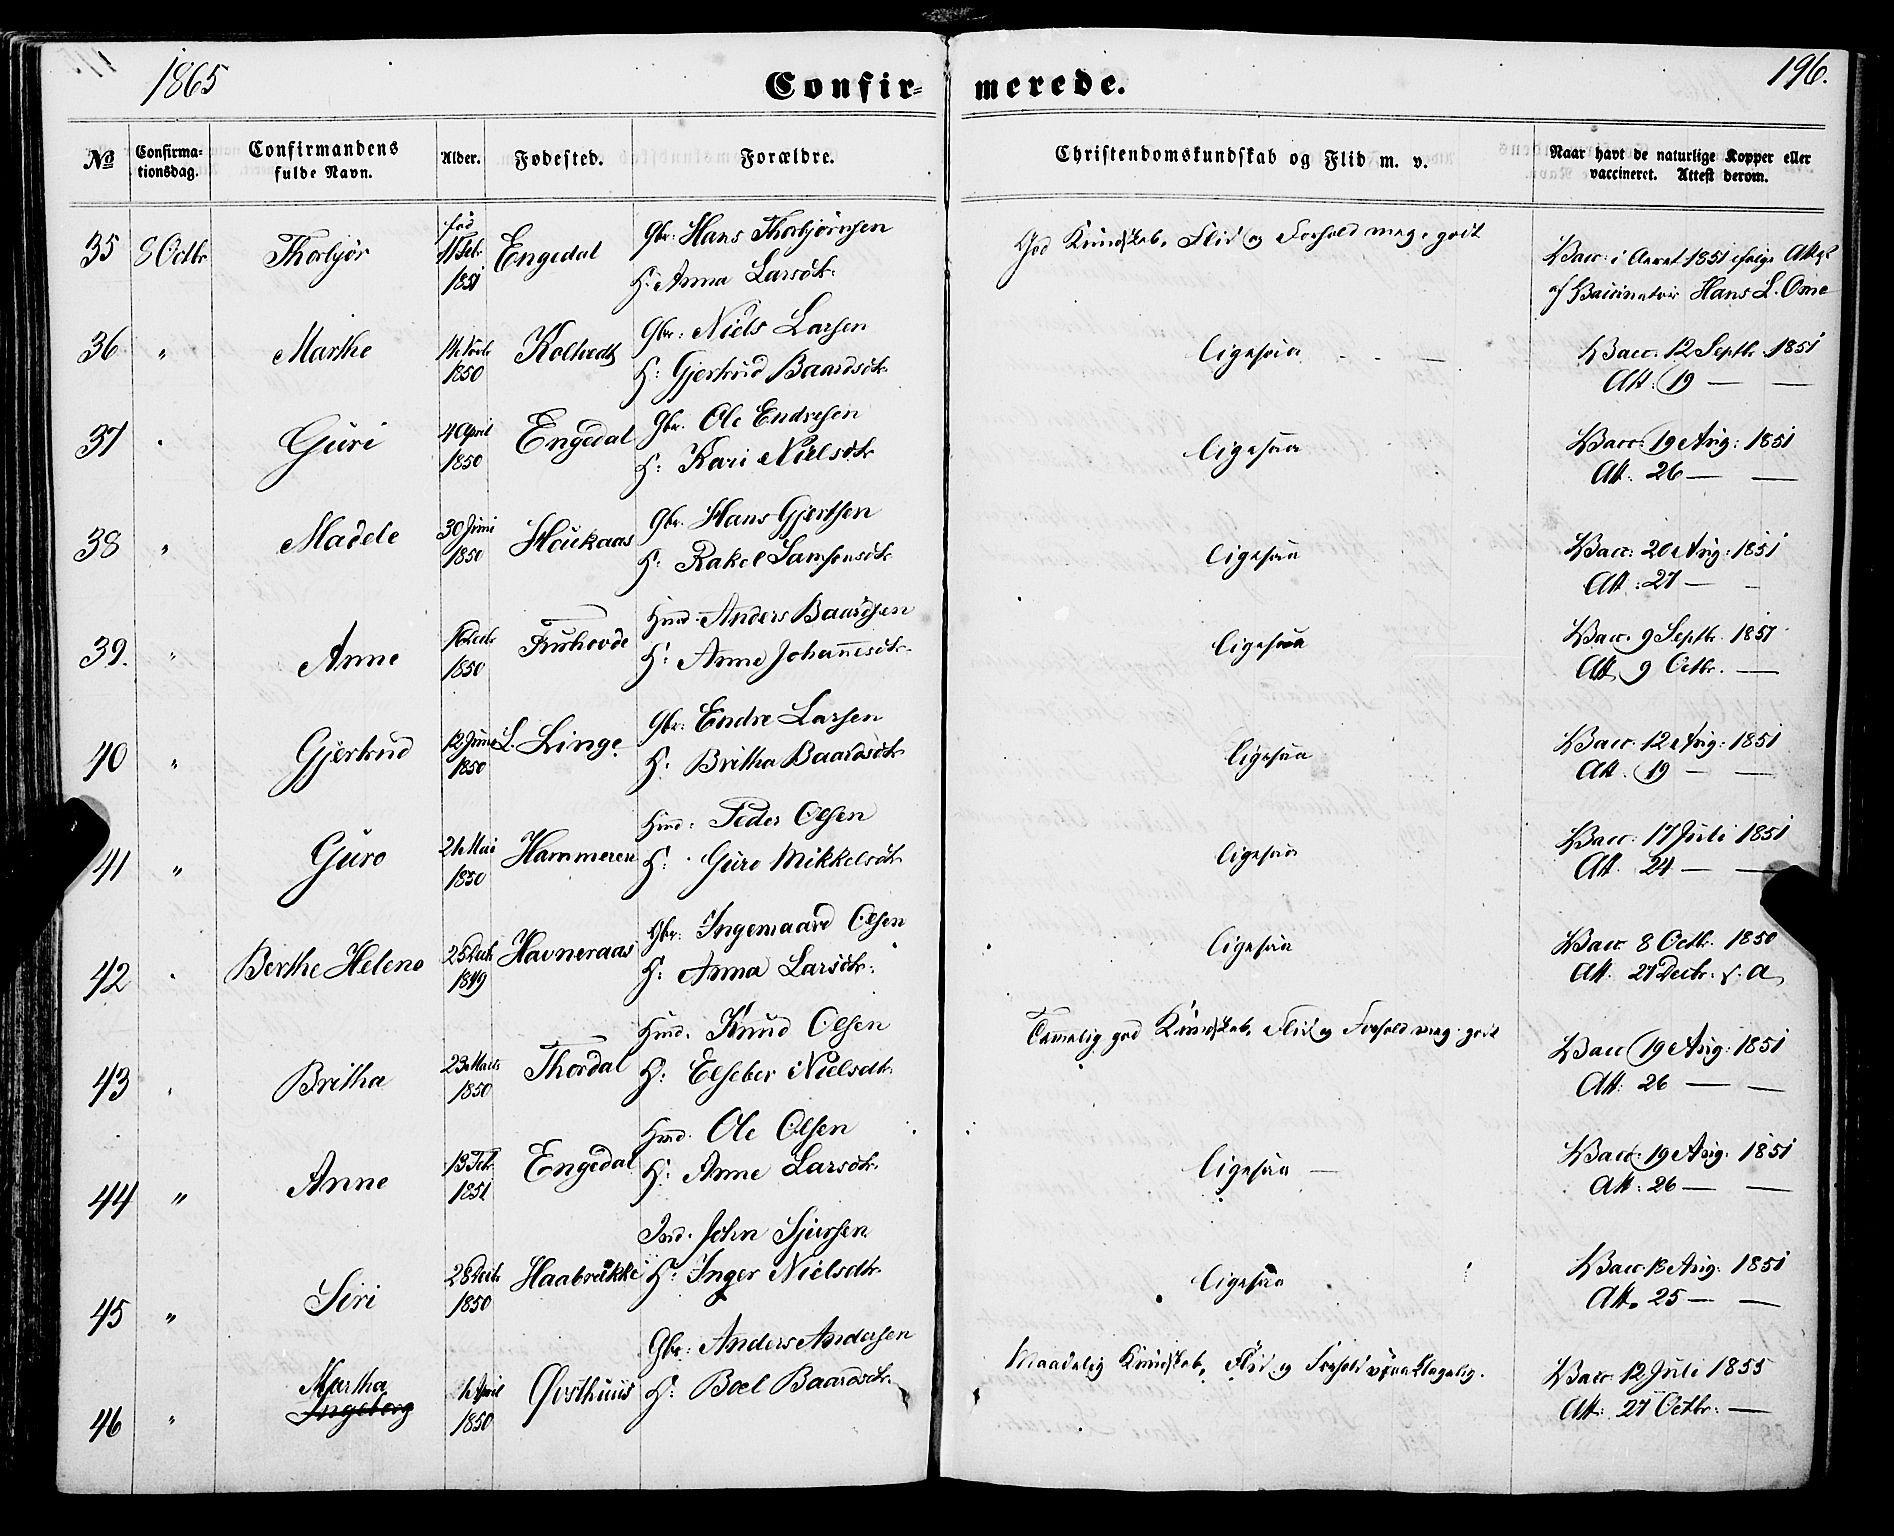 1865 Confir= merede. 196.
No Confirma= tionsdag. Confirmandens fulde Navn. Alder. Fødested. Forældre. Christendomskundskab og Flid m. v. Naar havt de naturlige Kopper eller vaccineret. Attest derom.
35 8 Octbr Thorbjør fød 11 Feb. 1851 Engedal Gbr. Hans Thorbjørnsen God Kundskab, Flid og Forhold meg. godt Vacc: i Aaret 1851 ifølge Attest
H: Anna Larsdtr. af Vaccinatør Hans L. Osne
36 " Marthe Novbr 1850 Gbr: Niels Larsen ligesaa Vacc. 12 Septbr. 1851
H: Gjertrud Baardsdtr. Att. 19 — —
37 " Guri 4 April 1850 Engedal Gbr. Ole Endresen ligesaa Vacc. 19 Aug: 1851
H: Kari Nielsdtr Att. 26 — —
38 " Madele 30 Juni 1850 Houkaas Gbr. Hans Gjertsen ligesaa Vacc: 20 Aug: 1851
H: Rakel Samsonsdtr. Att: 27 — —
39. " Anne Decbr 1850 Furhovde Hmd. Anders Baardsen ligesaa Vacc. 9 Septbr. 1851
H: Anne Johannesdtr. Att. 9 Octbr. —
40 " Gjertrud 12 Juni 1850 L. Linge Gbr: Endre Larsen ligesaa Vacc. 12 Aug: 1851
H: Britha Baardsdtr. Att. 19 — —
41 " Guro Mai 1850 Hammeren Hmd: Peder Olsen ligesaa Vacc: 17 Juli 1851
H: Guro Mikkelsdtr Att. 24 — —
42 " Berthe Helene 25 Decbr 1849 Havneraas Gbr: Ingemaard Olsen ligesaa Vacc. 8 Octb. 1850
H: Anna Larsdtr. Att. 27 Decbr. s. A.
43 " Britha 23 Marts 1850 Thordal Hmd. Knud Olsen Temmelig god Kundskab, Flid og Forhold meg. godt Vacc 19 Aug: 1851
H: Elseber Nielsdtr. Att: 26 — —
44 " Anne 13 Feb. 1851 Engedal Hmd. Ole Olsen ligesaa — Vacc: 19 Aug. 1851
H: Anne Larsdtr. Att: 26 — —
45 " Siri 28 Decbr 1850 Ind. John Sjursen ligesaa Vacc. Aug. 1851
H: Inger Nielsdtr. Att. 25 — —
46 " Martha Ingeborg April 1850 Østhuus Gbr: Anders Andersen Maadelig Kundskab, Flid og Forhold upaaklagelig. Vacc. 12 Juli 1855
H: Boel Baardsdtr. Att: 27 Octbr: —